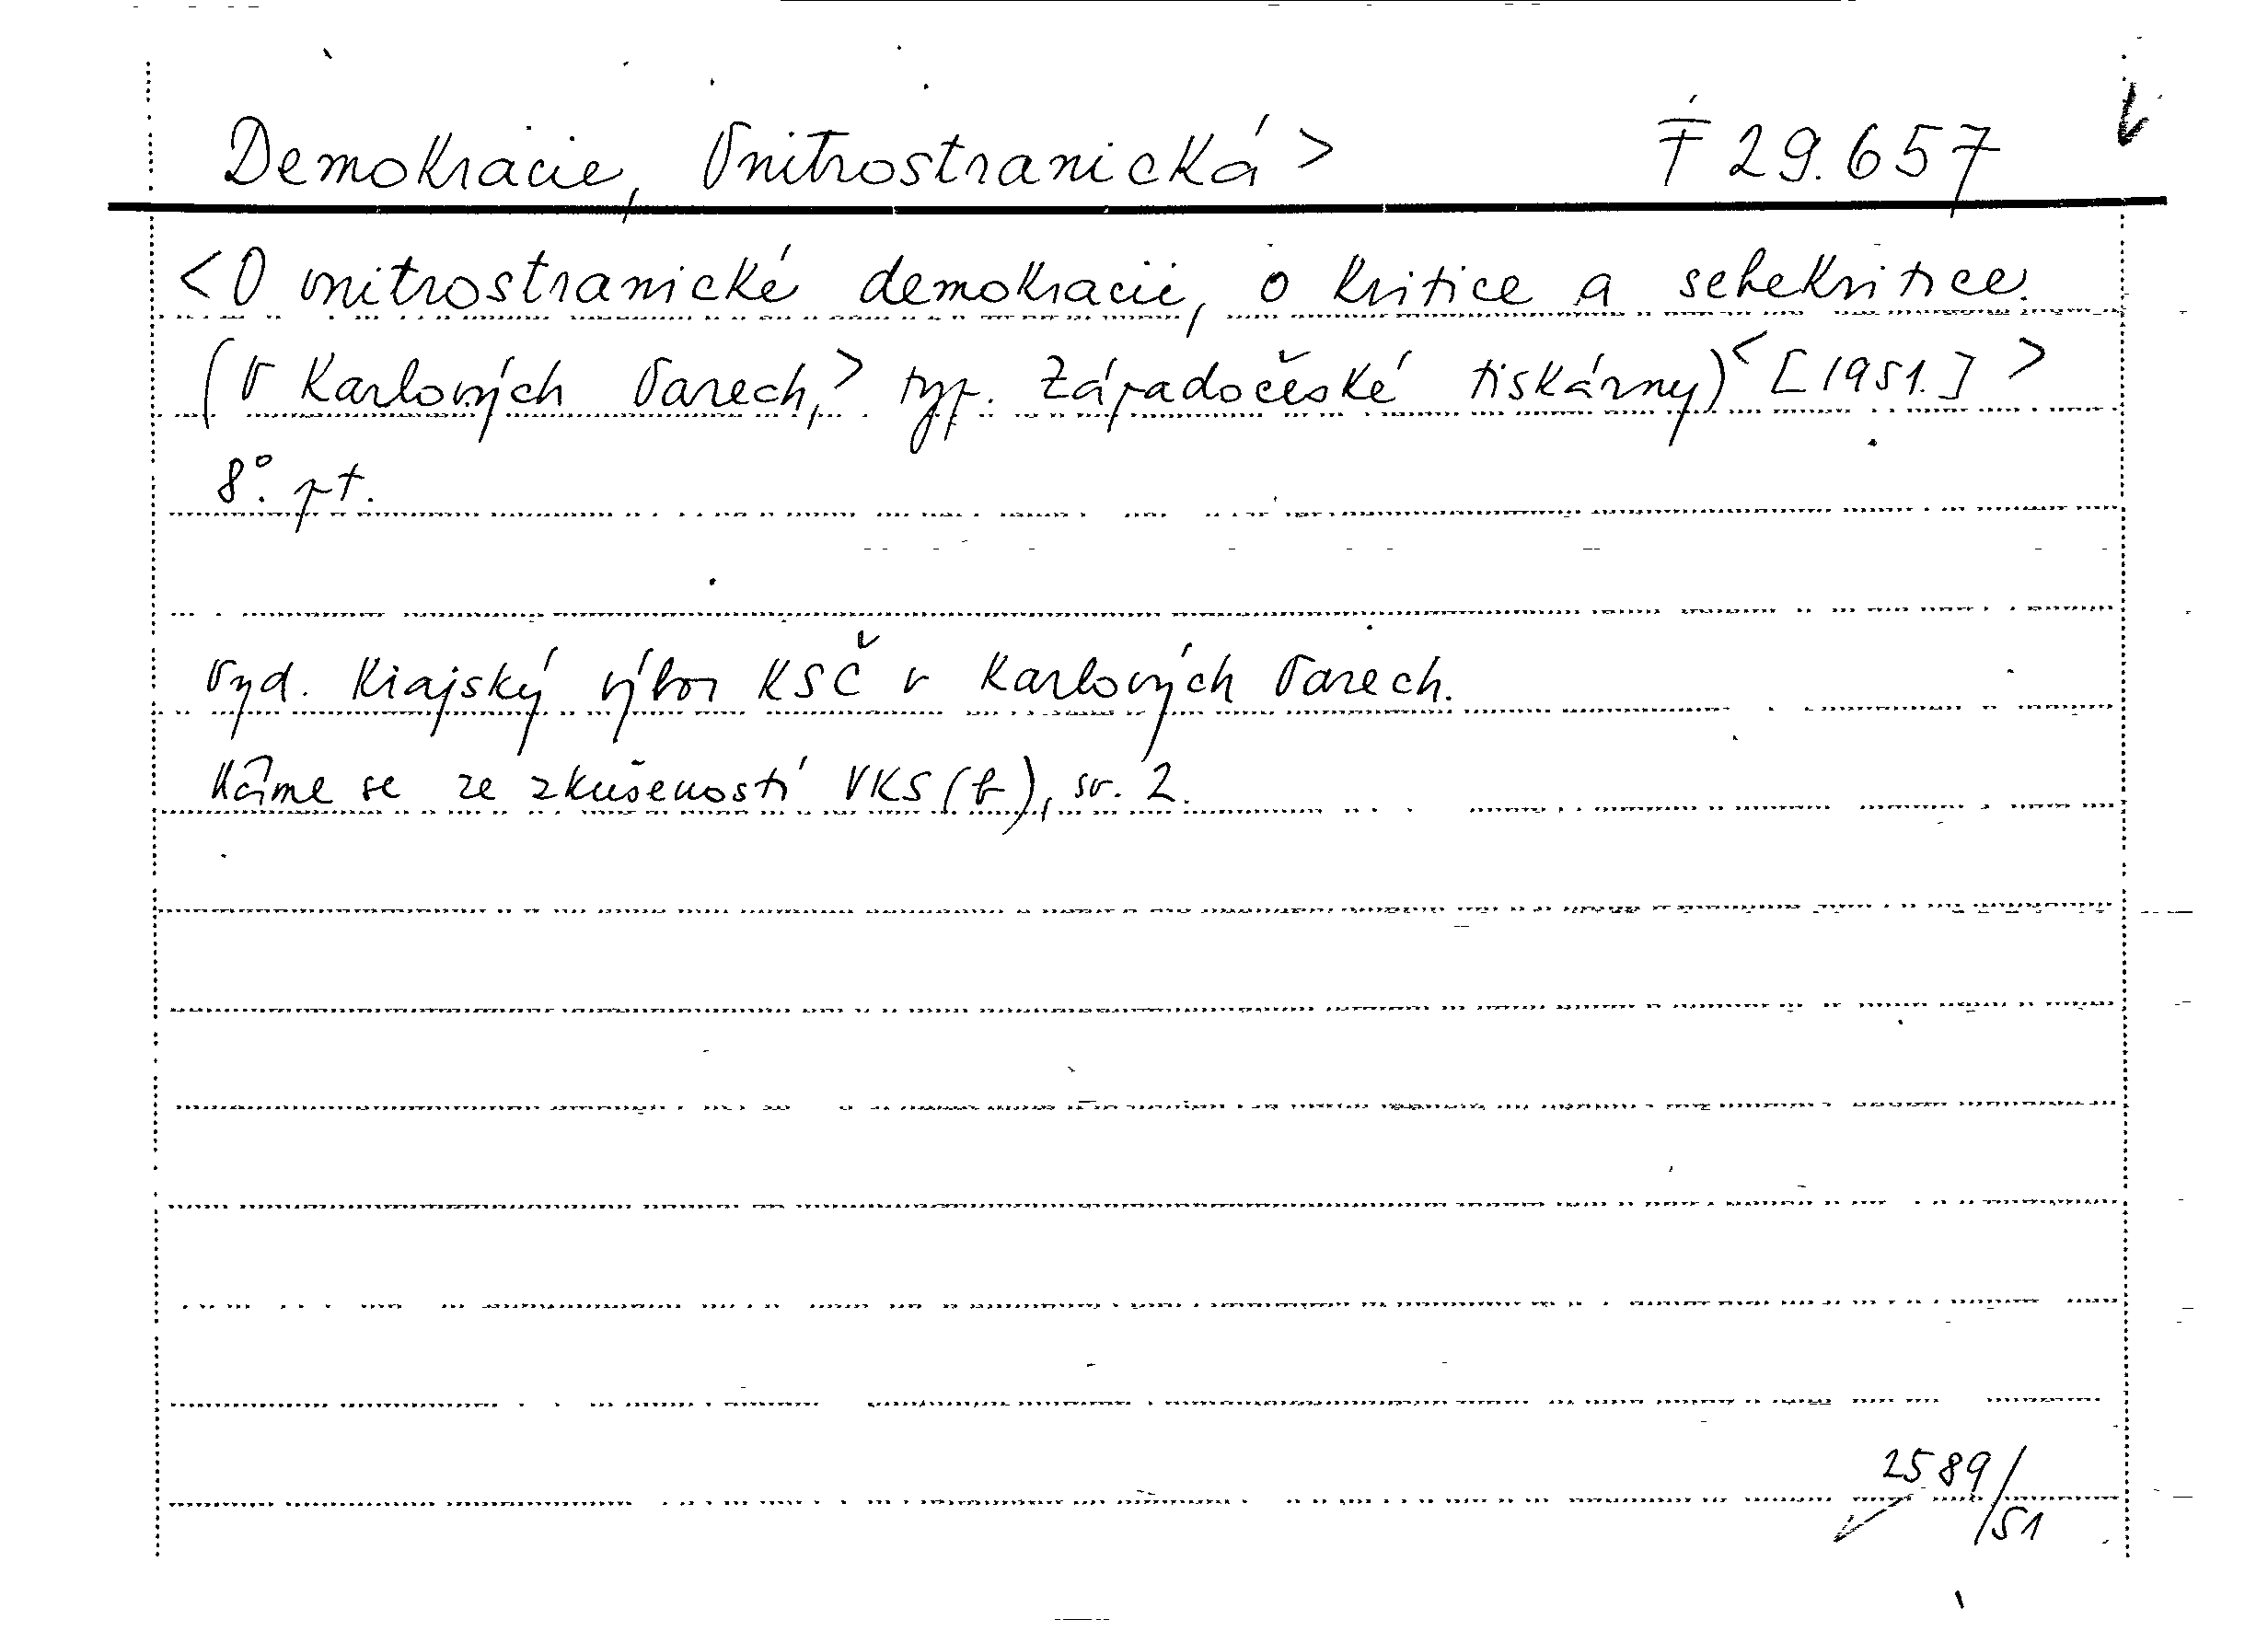 Demokracie, Vnitrostranická> T 29.657
<O vnitrostranické demokracii, o kritice a sebekritice.
(V Karlových Varech,> typ. Západočeské tiskárny) <[1951.]>
8°. pt.
Vyd. Krajský výbor KSČ v Karlových Varech.
Učíme se ze zkušeností VKS(b), sv. 2.
2589/51